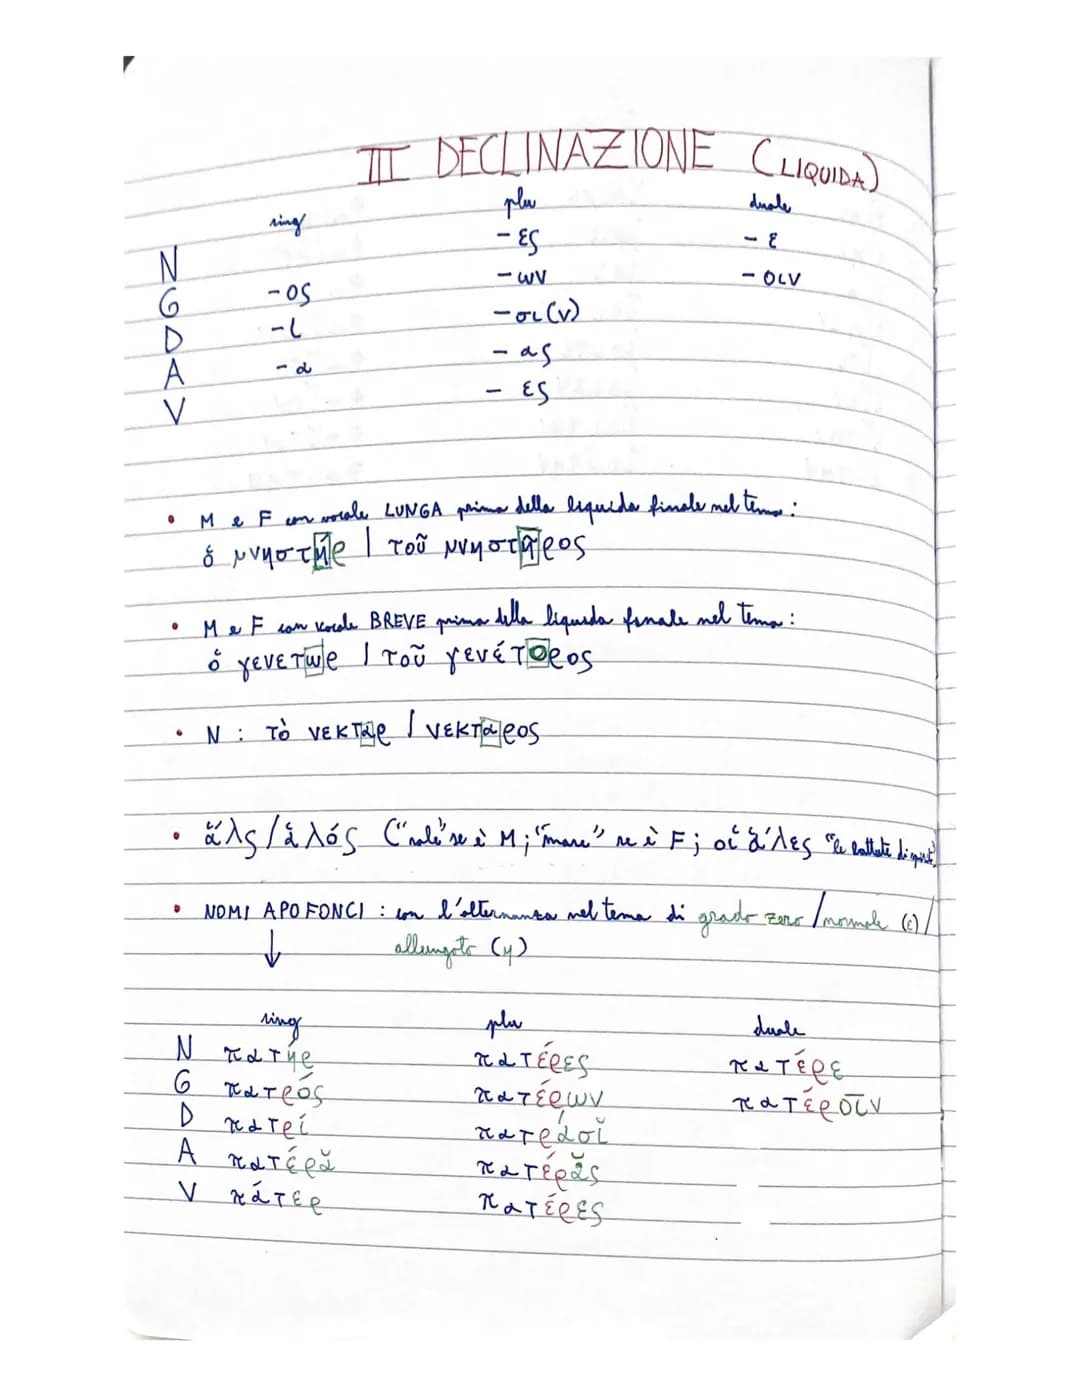 III DECLINAZIONE (LIQUIDA)
sing plu duale
N -ες -ε
G -ος -ων -οιν
D -ι -σι(ν)
A -α -ας
V -ες
• M e F con vocale LUNGA prima della liquida finale nel tema:
ὁ μνηστήρ | τοῦ μνηστῆρος
• M e F con vocale BREVE prima della liquida finale nel tema:
ὁ γενετωρ | τοῦ γενέτορος
• N: τὸ νεκταρ | νεκταρος
• ἅλς/ἁλός ("sale" se è M; "mare" se è F; οἱ ἅλες "le battute di spirit."
• NOMI APOFONCI : con l'alternanza nel tema di grado zero/normale (ε)/
↓ allungato (η)
sing plu duale
N πατήρ πατέρες πατέρε
G πατρός πατέρων πατέροιν
D πατρί πατράσῐ
A πατέρᾰ πατέρᾰς
V πάτερ πατέρες